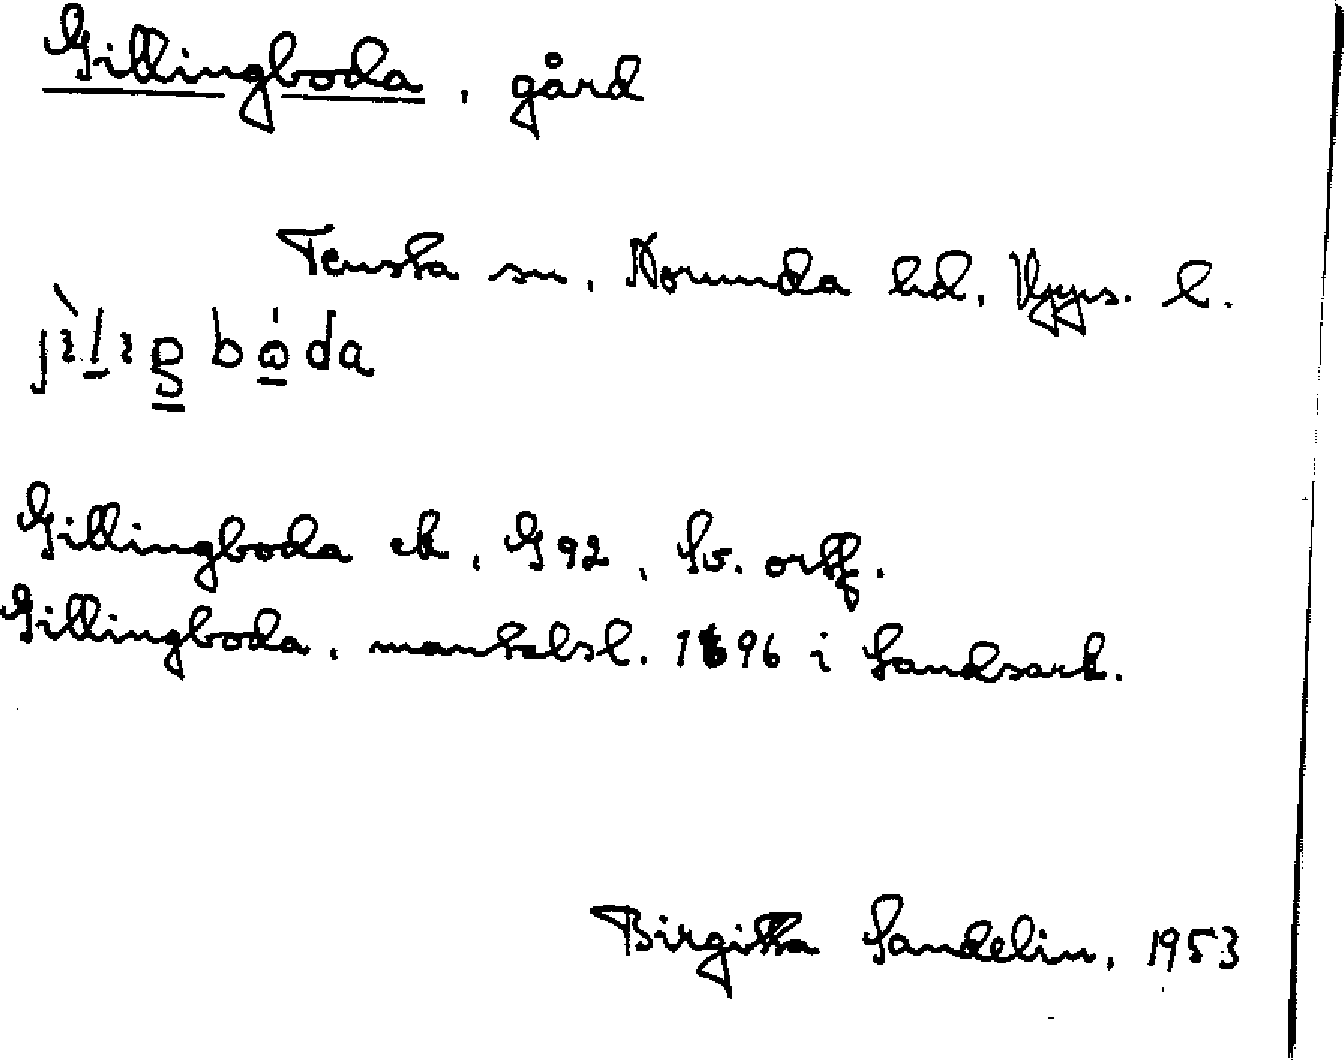 Gillingboda, gård
Tensta sn, Norunda hd, Upps. l.
Gillingboda ek, G 92, Sv. ortf.
Gillingboda, mantalsl. 1696 i Landsark.
Birgitta Sandelin, 1953